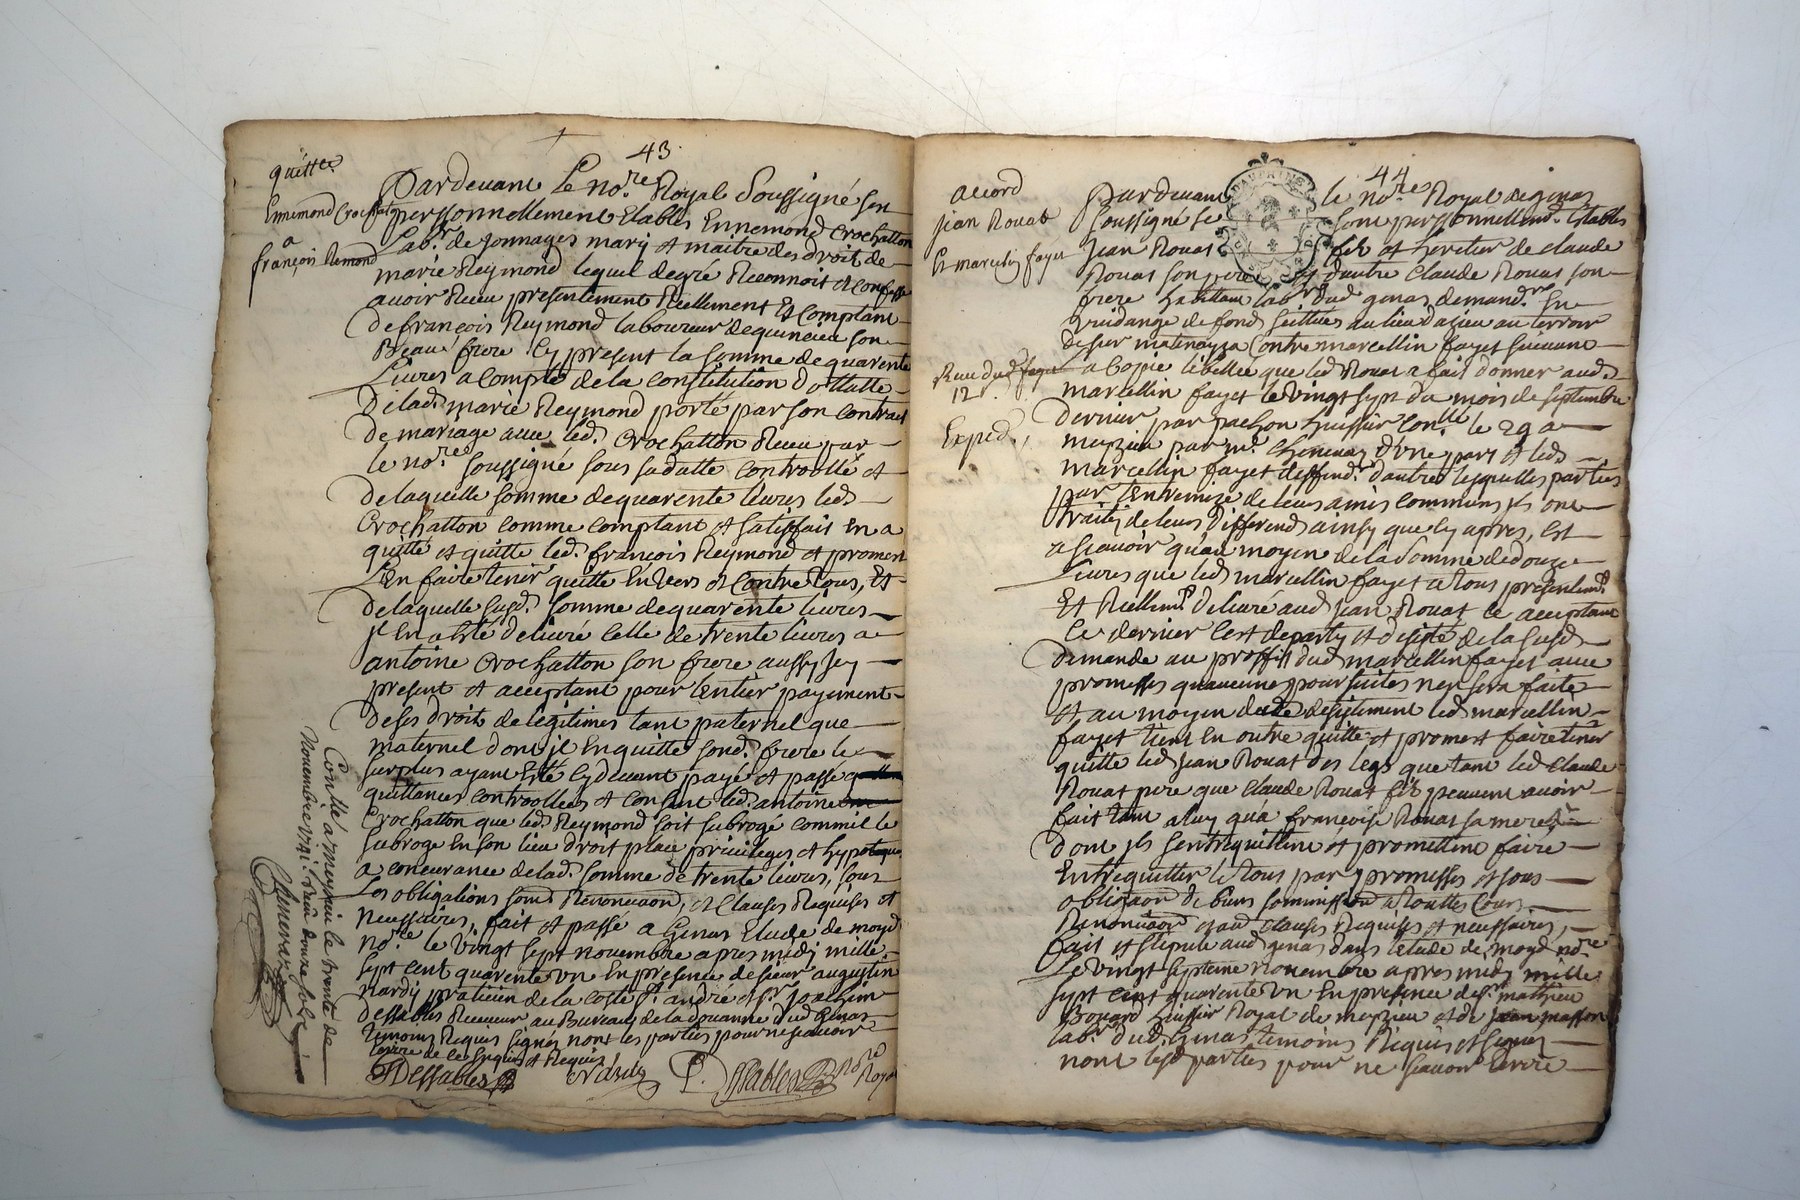 43
quitt.ce
Ennemond Crochatton
a
françois Remond
Pardevant Le no.re Royal Soussigné sen
personnellement Etablis Ennemond Crochatton
Lab.r de Jonnages mary et maitre des droit de
marie Reymond lequel de gré Reconnoit et confesse
avoir Receu presentement Reellement Et Comptant
de françois Reymond laboureur de
Beau frere Cy present la somme de quarente
Livres a compte de la constitution dottalle
de lad. marie Reymond porté par son contract
de mariage avec led. Crochatton Receu par
le no.re soussigné sous sa datte controollé et
de laquelle somme de quarente livres led.
Crochatton comme comptant et satisfait En a
quitté et quitte led. françois Reymond et promest
L'en faire tenir quitte Envers et Contre tous, Et
de laquelle susd. somme de quarente livres
jl En a Esté delivré celle de trente livres a
antoine Crochatton son frere aussy Jcy
present et acceptant pour lentier payement
de ses droits de legitimes tant paternel que
maternel dont jl En quitte sond. frere le
surplus ayant Esté Cydevant payé et passé
quittances controollées et consent led. antoine
Crochatton que led. Reymond soit subrogé comme il le
subroge En son lieu droit place privileges et hypoteques
a concurance de lad. somme de trente livres, sous
Les obligations soum. Renonciaon, et Clauses Requises et
necessaires, fait et passé a Genas Etude de moyd.
no.re le vingt sept novembre apres midy mille
sept cent quarente un En presence de sieur augustin
nardy praticien de la coste S.t andré et s.r Joachim
Dessables Receveur au Bureau de la douanne dud. Genas
temoins Requis signés non les parties pour ne scavoir
ecrire de ce Enquis et Requis
JDessables Nardy P. Dessables no.re Roya
Contllé a meyzin le trente de
Novembre 1741. Reçu douze sols
Chenevaz
44
accord
Jean Rouat
Et marcelin fayet
Receu dud. fayet
12 s.
Exped.,
Pardevant le no.re Royal de genas
soussigné se sont personnellem.t Etablis
Jean Rouat fils et heritier de claude
Rouat son pere et dautre Claude Rouat son
frere habittant lab.r dud. genas demand.r En
vuidange de fond scittués au lieu dazieu au terroir
de sur Contre marcellin fayet suivant
a Copie libellée que led. Rouat a fait donner aud.
marcellin fayet le vingt sept du mois de septembre
dernier par pachon huissier Con.llé le 29 a
meyzieu par m.e Chenevaz d'une part et led.
marcellin fayet deffend.r dautre lesquelles parties
par Lentremize de leurs amis communs jls ont
traité de leurs differends ainsy que Cy apres, Est
a scavoir quau moyen de la somme de douze
Livres que led. marcellin fayet a tous presentem.t
Et Reellem.t delivré aud. Jean Rouat le acceptant
Ce dernier c'est departy et desisté de la susd.
demande au proffit dud. marcellin fayet avec
promesses quaucunes poursuites nen sera faite
et au moyen de ce desistement led. marcellin
fayet tient En outre quitte et promest faire tenir
quitte led. Jean Rouat des legs que tant led. Claude
Rouat pere que claude Rouat fils peuvent avoir
fait tant a luy qu'a françoise Rouat sa mere
dont jls sentrequittent et promettent faire
Entrequitter Et tous par promesses et sous
obligaon de biens soummission a touttes Cours
Renonciaon et au clauses Requises et necessaires,
fait et stipulé aud. genas dans letude de moyd. no.re
Le vingt septieme novembre apres midy mille
sept cent quarente un En presence de s.r mathieu
Bonard huissier Royal de meyzieu et de Jean masson
lab.r dud. Genas temoins Requis et signés
non lesd. parties pour ne scavoir Ecrire